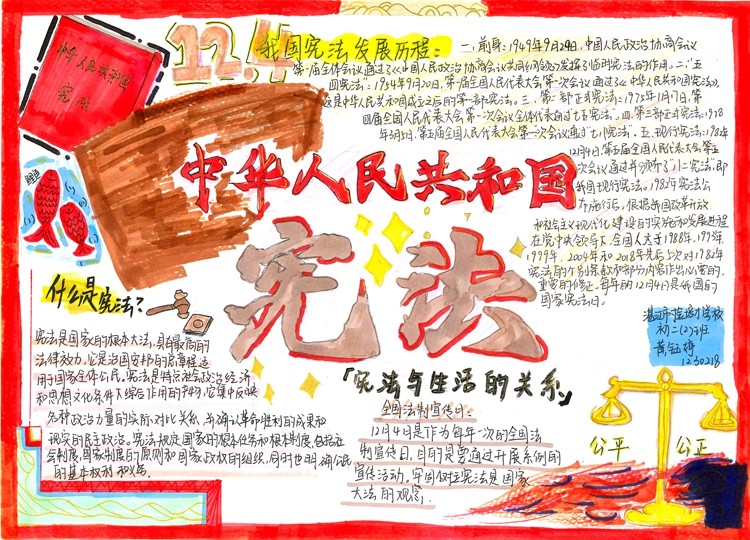 中华人民共和国
宪法
12.4
我国宪法发展历程:
一、前身:1949年9月29日,中国人民政治协商会议
第一届全体会议通过了《中国人民政治协商会议共同纲领》发挥了临时宪法的作用。二、"五
四宪法":1954年9月20日,第一届全国人民代表大会第一次会议通过了《中华人民共和国宪法》,
这是中华人民共和国成立后的第一部宪法。三、第二部正式宪法:1975年1月17日,第
四届全国人民代表大会第一次会议全体代表通过"七五宪法"。四、第三部正式宪法:1978
年3月5日,第五届全国人民代表大会第一次会议通过"七八宪法"。五、现行宪法:1982年
12月4日,第五届全国人民代表大会第五
次会议通过并颁布了"八二宪法",即
我国现行宪法。1982年宪法公
布施行后,根据我国改革开放
和社会主义现代化建设的实施和发展进程
在党中央领导下,全国人大于1988年、1993年、
1999年、2004年和2018年先后5次对1982年
宪法的个别条款和部分内容作出必要的、
重要的修正。每年的12月4日是我国的
国家宪法日。
中华人民共和国
宪法
什么是宪法?
宪法是国家的根本大法,具有最高的
法律效力。它是治国安邦的总章程,适
用于国家全体公民。宪法是特定社会政治经济
和思想文化条件下综合作用的产物,它集中反映
各种政治力量的实际对比关系,并确认革命胜利的成果和
现实的民主政治。宪法规定国家的根本任务和根本制度,包括社
会制度、国家制度的原则和国家政权的组织,同时也明确公民
的基本权利和义务。
「宪法与生活的关系」
全国法制宣传日:
12月4日是作为每年一次的全国法
制宣传日,目的是要通过开展系列的
宣传活动,牢固树立宪法是国家
大法的观念。
初二(2)班
1230218
公平
公正